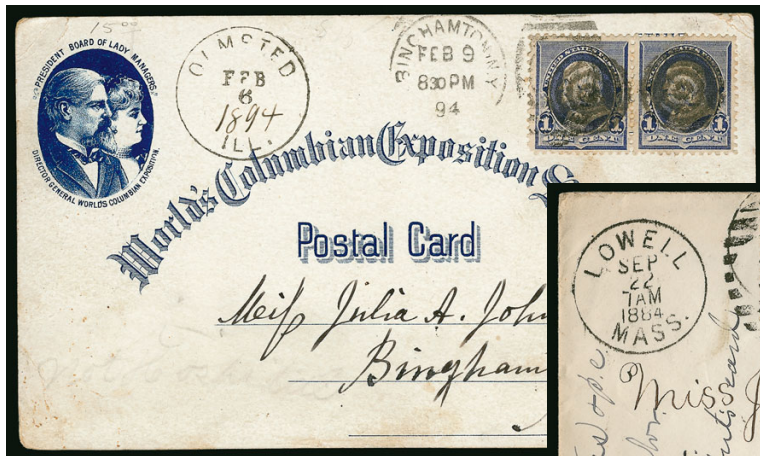 15
"PRESIDENT BOARD OF LADY MANAGERS."
DIRECTOR GENERAL WORLD'S COLUMBIAN EXPOSITION.
OLMSTED
FEB
6
1894
ILL.
BINGHAMTON, N.Y.
FEB 9
830PM
94
1 1
1 1
World's Columbian Exposition
Postal Card
Miss Julia A. John
Bingham
LOWELL
SEP
22
7AM
1884
MASS.
Miss J